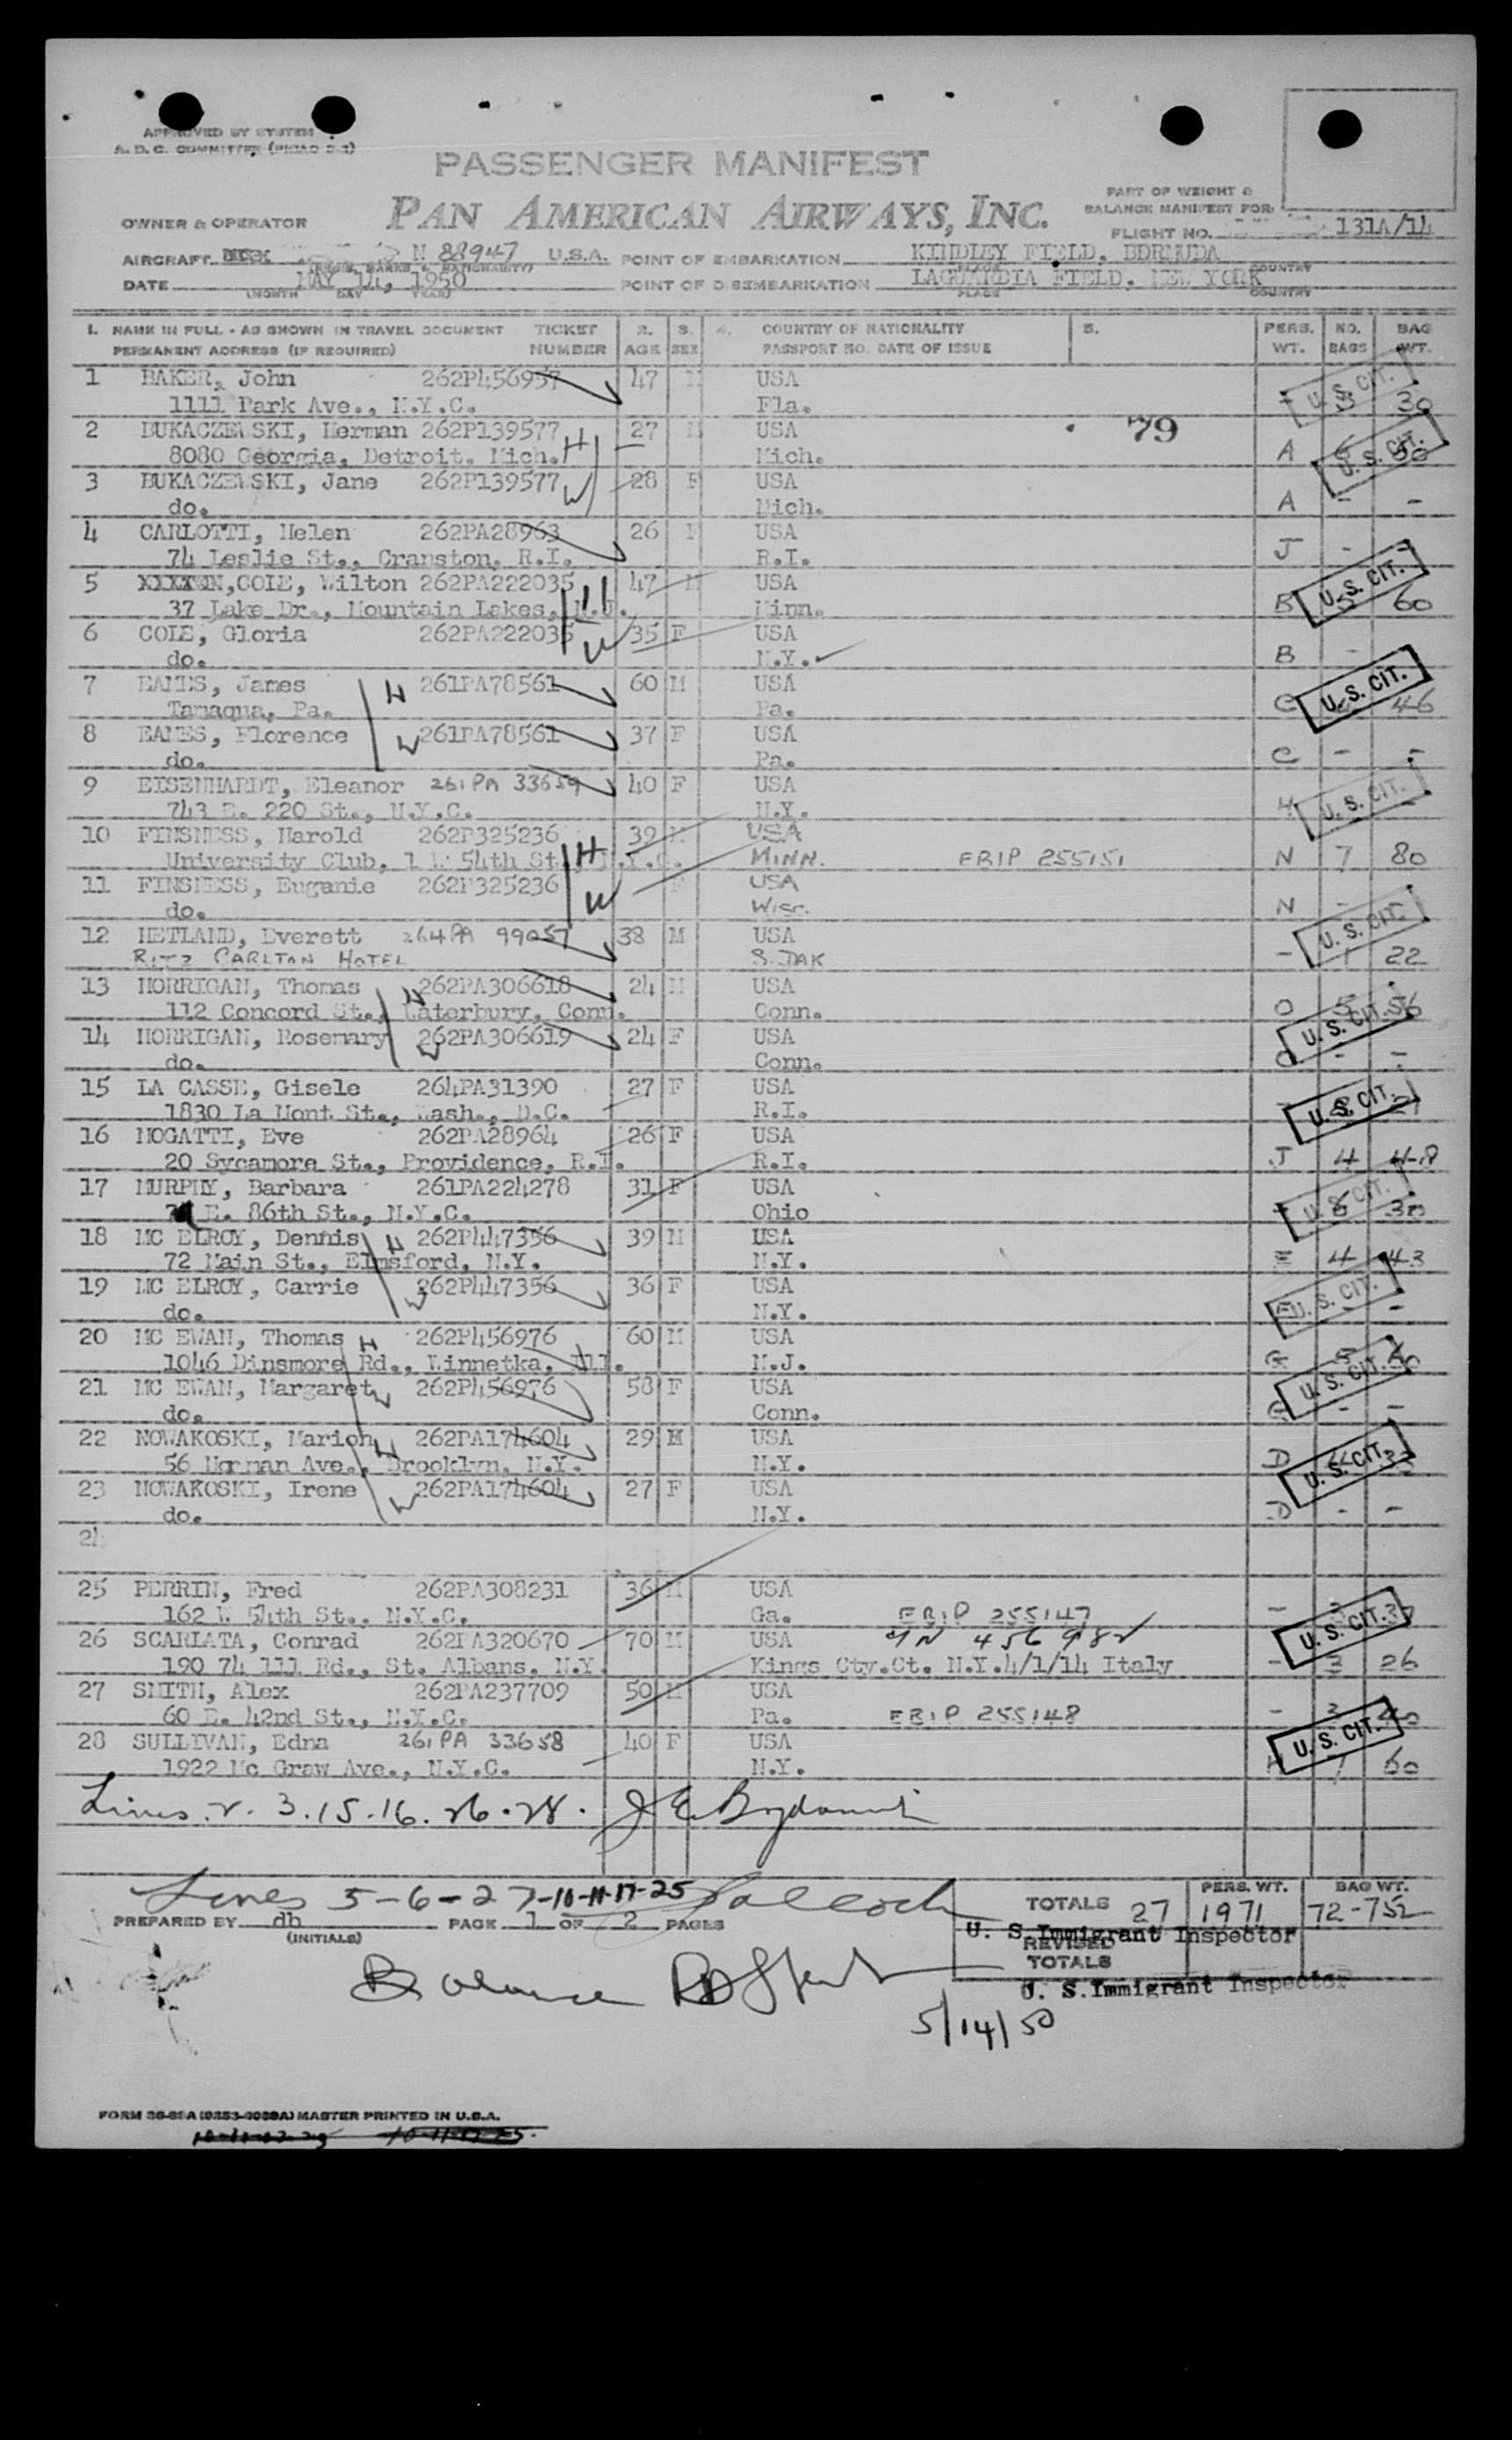 APPROVED BY SYSTEM
A. D. C. COMMITTEE
PASSENGER MANIFEST
PAN AMERICAN AIRWAYS, INC.
PART OF WEIGHT &
BALANCE MANIFEST FOR:
OWNER & OPERATOR
FLIGHT NO. 131A/14
AIRCRAFT N 88947 U.S.A. POINT OF EMBARKATION KINDLEY FIELD, BERMUDA
(REGIS. MARKS & NATIONALITY) PLACE COUNTRY
DATE MAY 14, 1950 POINT OF DISEMBARKATION LAGUARDIA FIELD, NEW YORK
(MONTH DAY YEAR) PLACE COUNTRY
1. NAME IN FULL - AS SHOWN IN TRAVEL DOCUMENT TICKET 2. 3. 4. COUNTRY OF NATIONALITY 5. PERS. NO. BAG
PERMANENT ADDRESS (IF REQUIRED) NUMBER AGE SEX PASSPORT NO. DATE OF ISSUE WT. BAGS WT.
1 BAKER, John 262P456957 47 M USA U. S. CIT.
1111 Park Ave., N.Y.C. Fla. - 3 30
79
2 BUKACZEWSKI, Herman 262P139577 27 M USA
8080 Georgia, Detroit, Mich. H Mich. A U. S. CIT.
3 BUKACZEWSKI, Jane 262P139577 W 28 F USA
do. Mich. A - -
4 CARLOTTI, Helen 262PA28963 26 F USA
74 Leslie St., Cranston, R.I. R.I. J - -
5 XXXXXN, COLE, Wilton 262PA222035 47 M USA U. S. CIT.
37 Lake Dr., Mountain Lakes, N.J. H Minn. B 60
6 COLE, Gloria 262PA222035 W 35 F USA
do. N.Y. B -
7 EAMES, James H 261PA78561 60 M USA U. S. CIT.
Tamaqua, Pa. Pa. C 46
8 EAMES, Florence W 261PA78561 37 F USA
do. Pa. C - -
9 EISENHARDT, Eleanor 261PA 33659 40 F USA U. S. CIT.
743 E. 220 St., N.Y.C. N.Y. H
10 FINSNESS, Harold 262P325236 39 M USA
University Club, 1 W 54th St., N.Y.C. H MINN. ERIP 255151 N 7 80
11 FINSNESS, Euganie 262P325236 W F USA
do. WISC. N -
12 HETLAND, Everett 264PA 99057 38 M USA U. S. CIT.
RITZ CARLTON HOTEL S. DAK - 1 22
13 HORRIGAN, Thomas H 262PA306618 24 M USA
112 Concord St., Waterbury, Conn. Conn. O 5 56
14 HORRIGAN, Rosemary W 262PA306619 24 F USA U. S. CIT.
do. Conn. O - -
15 LA CASSE, Gisele 264PA31390 27 F USA U. S. CIT.
1830 La Mont St., Wash., D.C. R.I. -
16 MOGATTI, Eve 262PA28964 26 F USA
20 Sycamore St., Providence, R.I. R.I. J 4 48
17 MURPHY, Barbara 261PA224278 31 F USA U. S. CIT.
E. 86th St., N.Y.C. Ohio - 30
18 MC ELROY, Dennis H 262P447356 39 M USA
72 Main St., Elmsford, N.Y. N.Y. E 4 43
19 MC ELROY, Carrie W 262P447356 36 F USA U. S. CIT.
do. N.Y. E - -
20 MC EWAN, Thomas H 262P456976 60 M USA
1046 Dinsmore Rd., Winnetka, Ill. N.J. G
21 MC EWAN, Margaret W 262P456976 58 F USA U. S. CIT.
do. Conn. G - -
22 NOWAKOSKI, Marion H 262PA174604 29 M USA
56 Norman Ave., Brooklyn, N.Y. N.Y. D U. S. CIT.
23 NOWAKOSKI, Irene W 262PA174604 27 F USA
do. N.Y. D - -
24
25 PERRIN, Fred 262PA308231 36 M USA
162 W 54th St., N.Y.C. Ga. ERIP 255147 - 3 37
26 SCARLATA, Conrad 262PA320670 70 M USA U. S. CIT.
190 74 111 Rd., St. Albans, N.Y. Kings Cty.Ct. N.Y.4/1/14 Italy - 3 26
27 SMITH, Alex 262PA237709 50 M USA
60 E. 42nd St., N.Y.C. Pa. ERIP 255148 - 3 40
28 SULLIVAN, Edna 261PA 33658 40 F USA U. S. CIT.
1922 Mc Graw Ave., N.Y.C. N.Y. H 7 60
Lines 2. 3. 15. 16. 26. 28.
Lines 5-6-27-10-11-17-25
TOTALS 27 PERS. WT. 1971 BAG WT. 72-752
PREPARED BY db PAGE 1 OF 2 PAGES
(INITIALS)
U. S. Immigrant Inspector
REVISED
TOTALS
Balance
U. S. Immigrant Inspector
5/14/50
FORM MASTER PRINTED IN U.S.A.